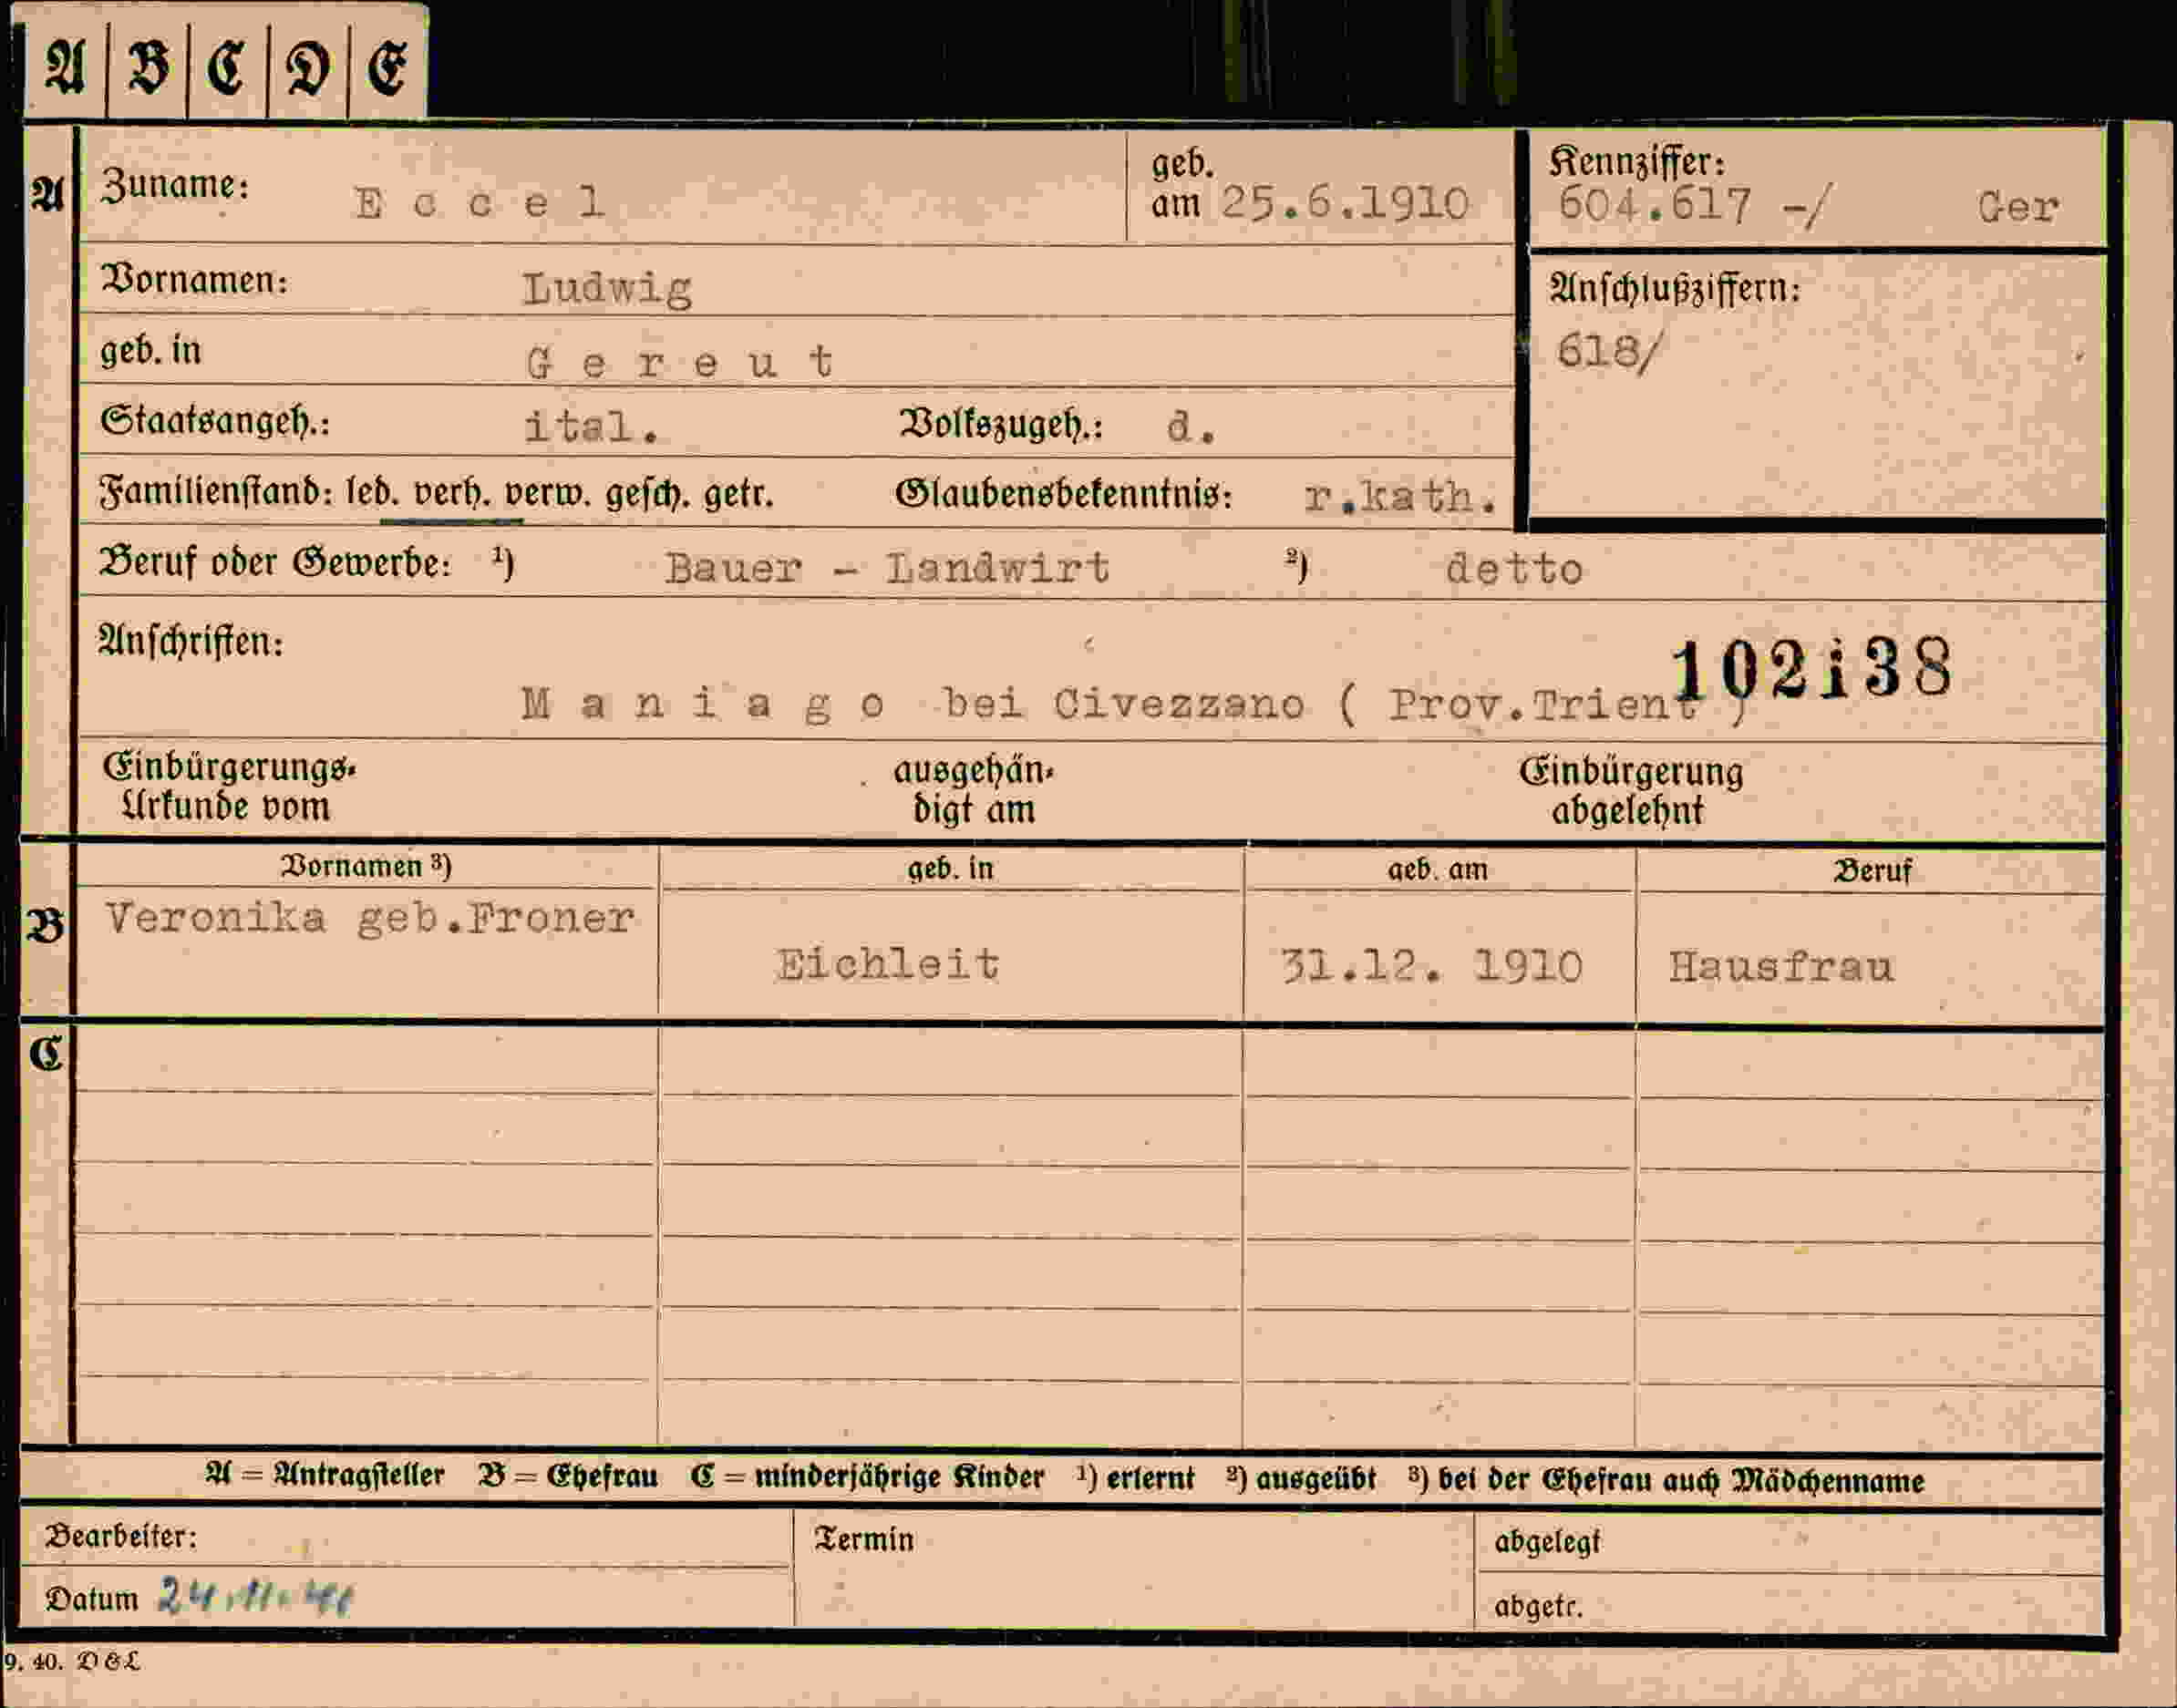 A B C D E
A Zuname: Eccel geb. am 25.6.1910 Kennziffer: 604.617 -/ Ger
Vornamen: Ludwig Anschlußziffern:
geb. in Gereut 618/
Staatsangeh.: ital. Volkszugeh.: d.
Familienstand: led. verh. verw. gesch. getr. Glaubensbekenntnis: r.kath.
Beruf oder Gewerbe: ¹) Bauer - Landwirt ²) detto
Anschriften: 102138
Maniago bei Civezzano ( Prov.Trient )
Einbürgerungs- ausgehän- Einbürgerung
Urkunde vom digt am abgelehnt
Vornamen ³) geb. in geb. am Beruf
B Veronika geb.Froner
Eichleit 31.12. 1910 Hausfrau
C
A = Antragsteller B = Ehefrau C = minderjährige Kinder ¹) erlernt ²) ausgeübt ³) bei der Ehefrau auch Mädchenname
Bearbeiter: Termin abgelegt
Datum 24.11.41 abgetr.
9. 40. D & L